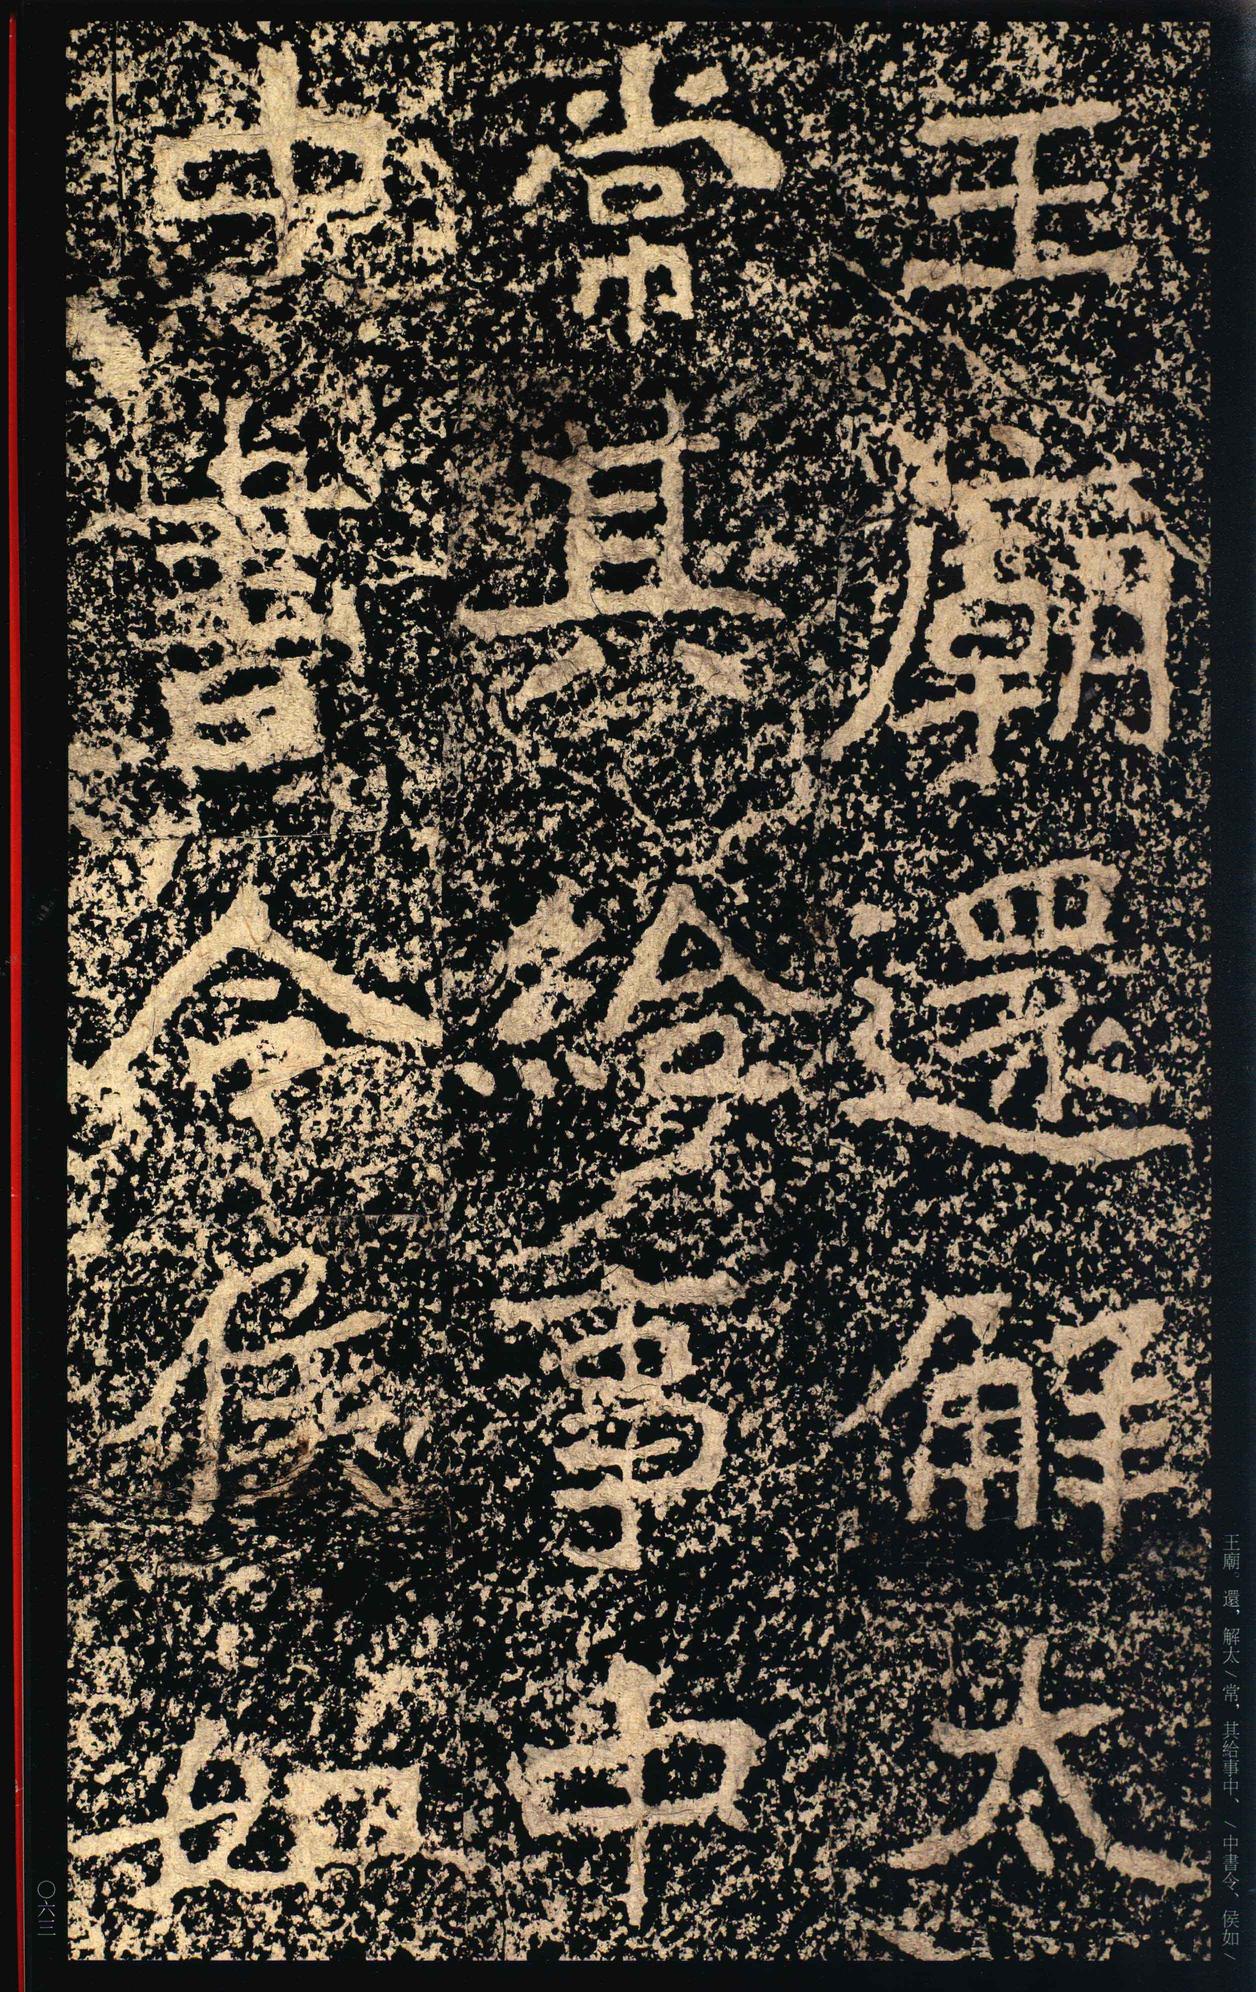 王廟還解太
常其給事中
中書令侯如
王廟還，解太/常，其給事中、/中書令、侯如/
〇六三